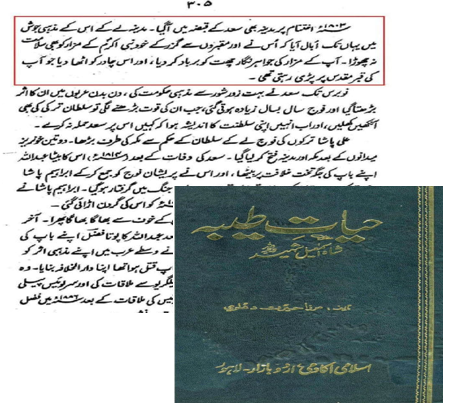 ۳۰۵
۱۸۰۳ء کے اختتام پر مدینہ بھی سعد کے قبضہ میں آگیا۔ مدینہ لے کے اس کے مذہبی جوش
میں یہاں تک اُبال آیا کہ اُس نے اور مقبروں سے گزر کے خود نبی اکرم کے مزار کو بھی سلامت
نہ چھوڑا۔ آپ کے مزار کی جواہر نگار چھت کو برباد کر دیا، اور اس چادر کو اٹھا دیا جو آپ
کی قبر مقدس پر پڑی رہتی تھی۔
نو برس تک سعد نے بہت زور شور سے مذہبی حکومت کی، دن بدن عربوں میں ان کا اثر
بڑھتا گیا اور فوج سال بسال زیادہ ہوتی گئی، جب ان کی قوت بڑھنے لگی تو سلطان ترکی کی بھی
آنکھیں کھلیں، اور اب انہیں اپنی سلطنت کا اندیشہ ہوا کہ کہیں اس پر سعد حملہ نہ کرے۔
علی پاشا ترکوں کی فوج لے کے سلطان کے حکم سے مکہ کی طرف بڑھا۔ دو تین خونریز
میدانوں کے بعد مکہ اور مدینہ فتح کر لیا گیا۔ سعد کی وفات کے بعد اس کا بیٹا عبداللہ
اپنے باپ کی جگہ تخت خلافت پر بیٹھا، اور اس نے پریشان فوج کو جمع کر کے ابراہیم پاشا
جنگ میں گرفتار ہوگیا۔ ابراہیم پاشا نے
کو اس کی گردن اڑائی گئی۔
کے خوف سے بھاگا بھاگا پھرا۔ آخر
عبداللہ کا پوتا فیصل اپنے باپ کی
نے وسط عرب میں اپنے مذہبی اثر کو
قتل ہوا تھا اپنا دار الخلافہ بنایا۔ وہ
سے ملاقات کی اور سر لوئیس پیلی
کی ملاقات کے بعد ۱۸۶۶ء میں فیصل
حیات طیبہ
شاہ اسمٰعیل شہید
مرزا حیرت دہلوی
اسلامی اکادمی اردو بازار۔ لاہور